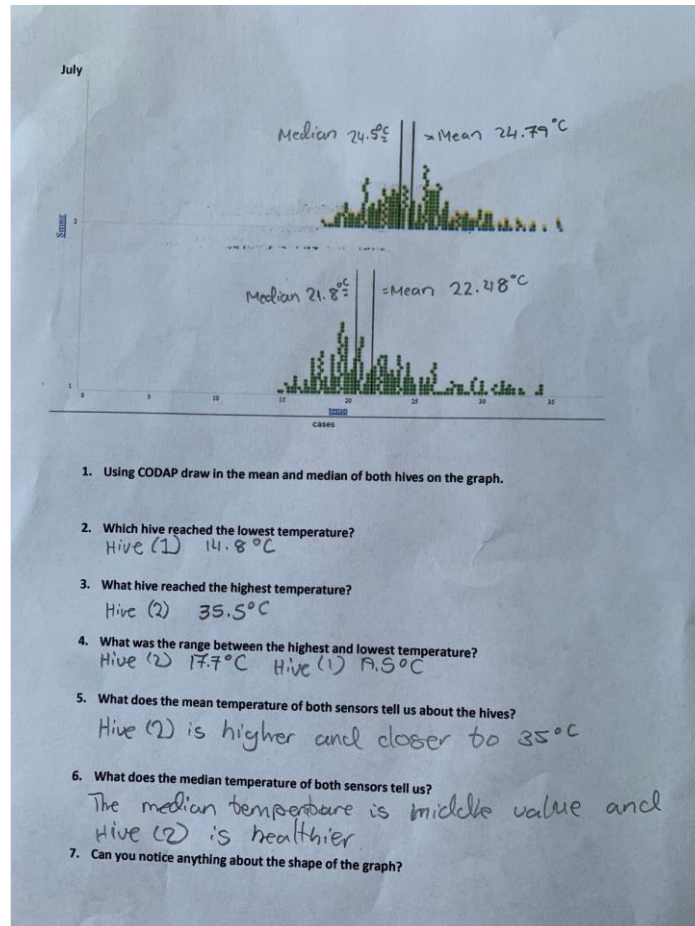 July
Median 24.5°C
= Mean 24.79°C
Sensor
2
Median 21.8°C
= Mean 22.48°C
1
0 5 10 15 20 25 30 35
temp
cases
1. Using CODAP draw in the mean and median of both hives on the graph.
2. Which hive reached the lowest temperature?
Hive (1) 14.8°C
3. What hive reached the highest temperature?
Hive (2) 35.5°C
4. What was the range between the highest and lowest temperature?
Hive (2) 17.7°C Hive (1) 19.5°C
5. What does the mean temperature of both sensors tell us about the hives?
Hive (2) is higher and closer to 35°C
6. What does the median temperature of both sensors tell us?
The median temperature is middle value and
Hive (2) is healthier.
7. Can you notice anything about the shape of the graph?